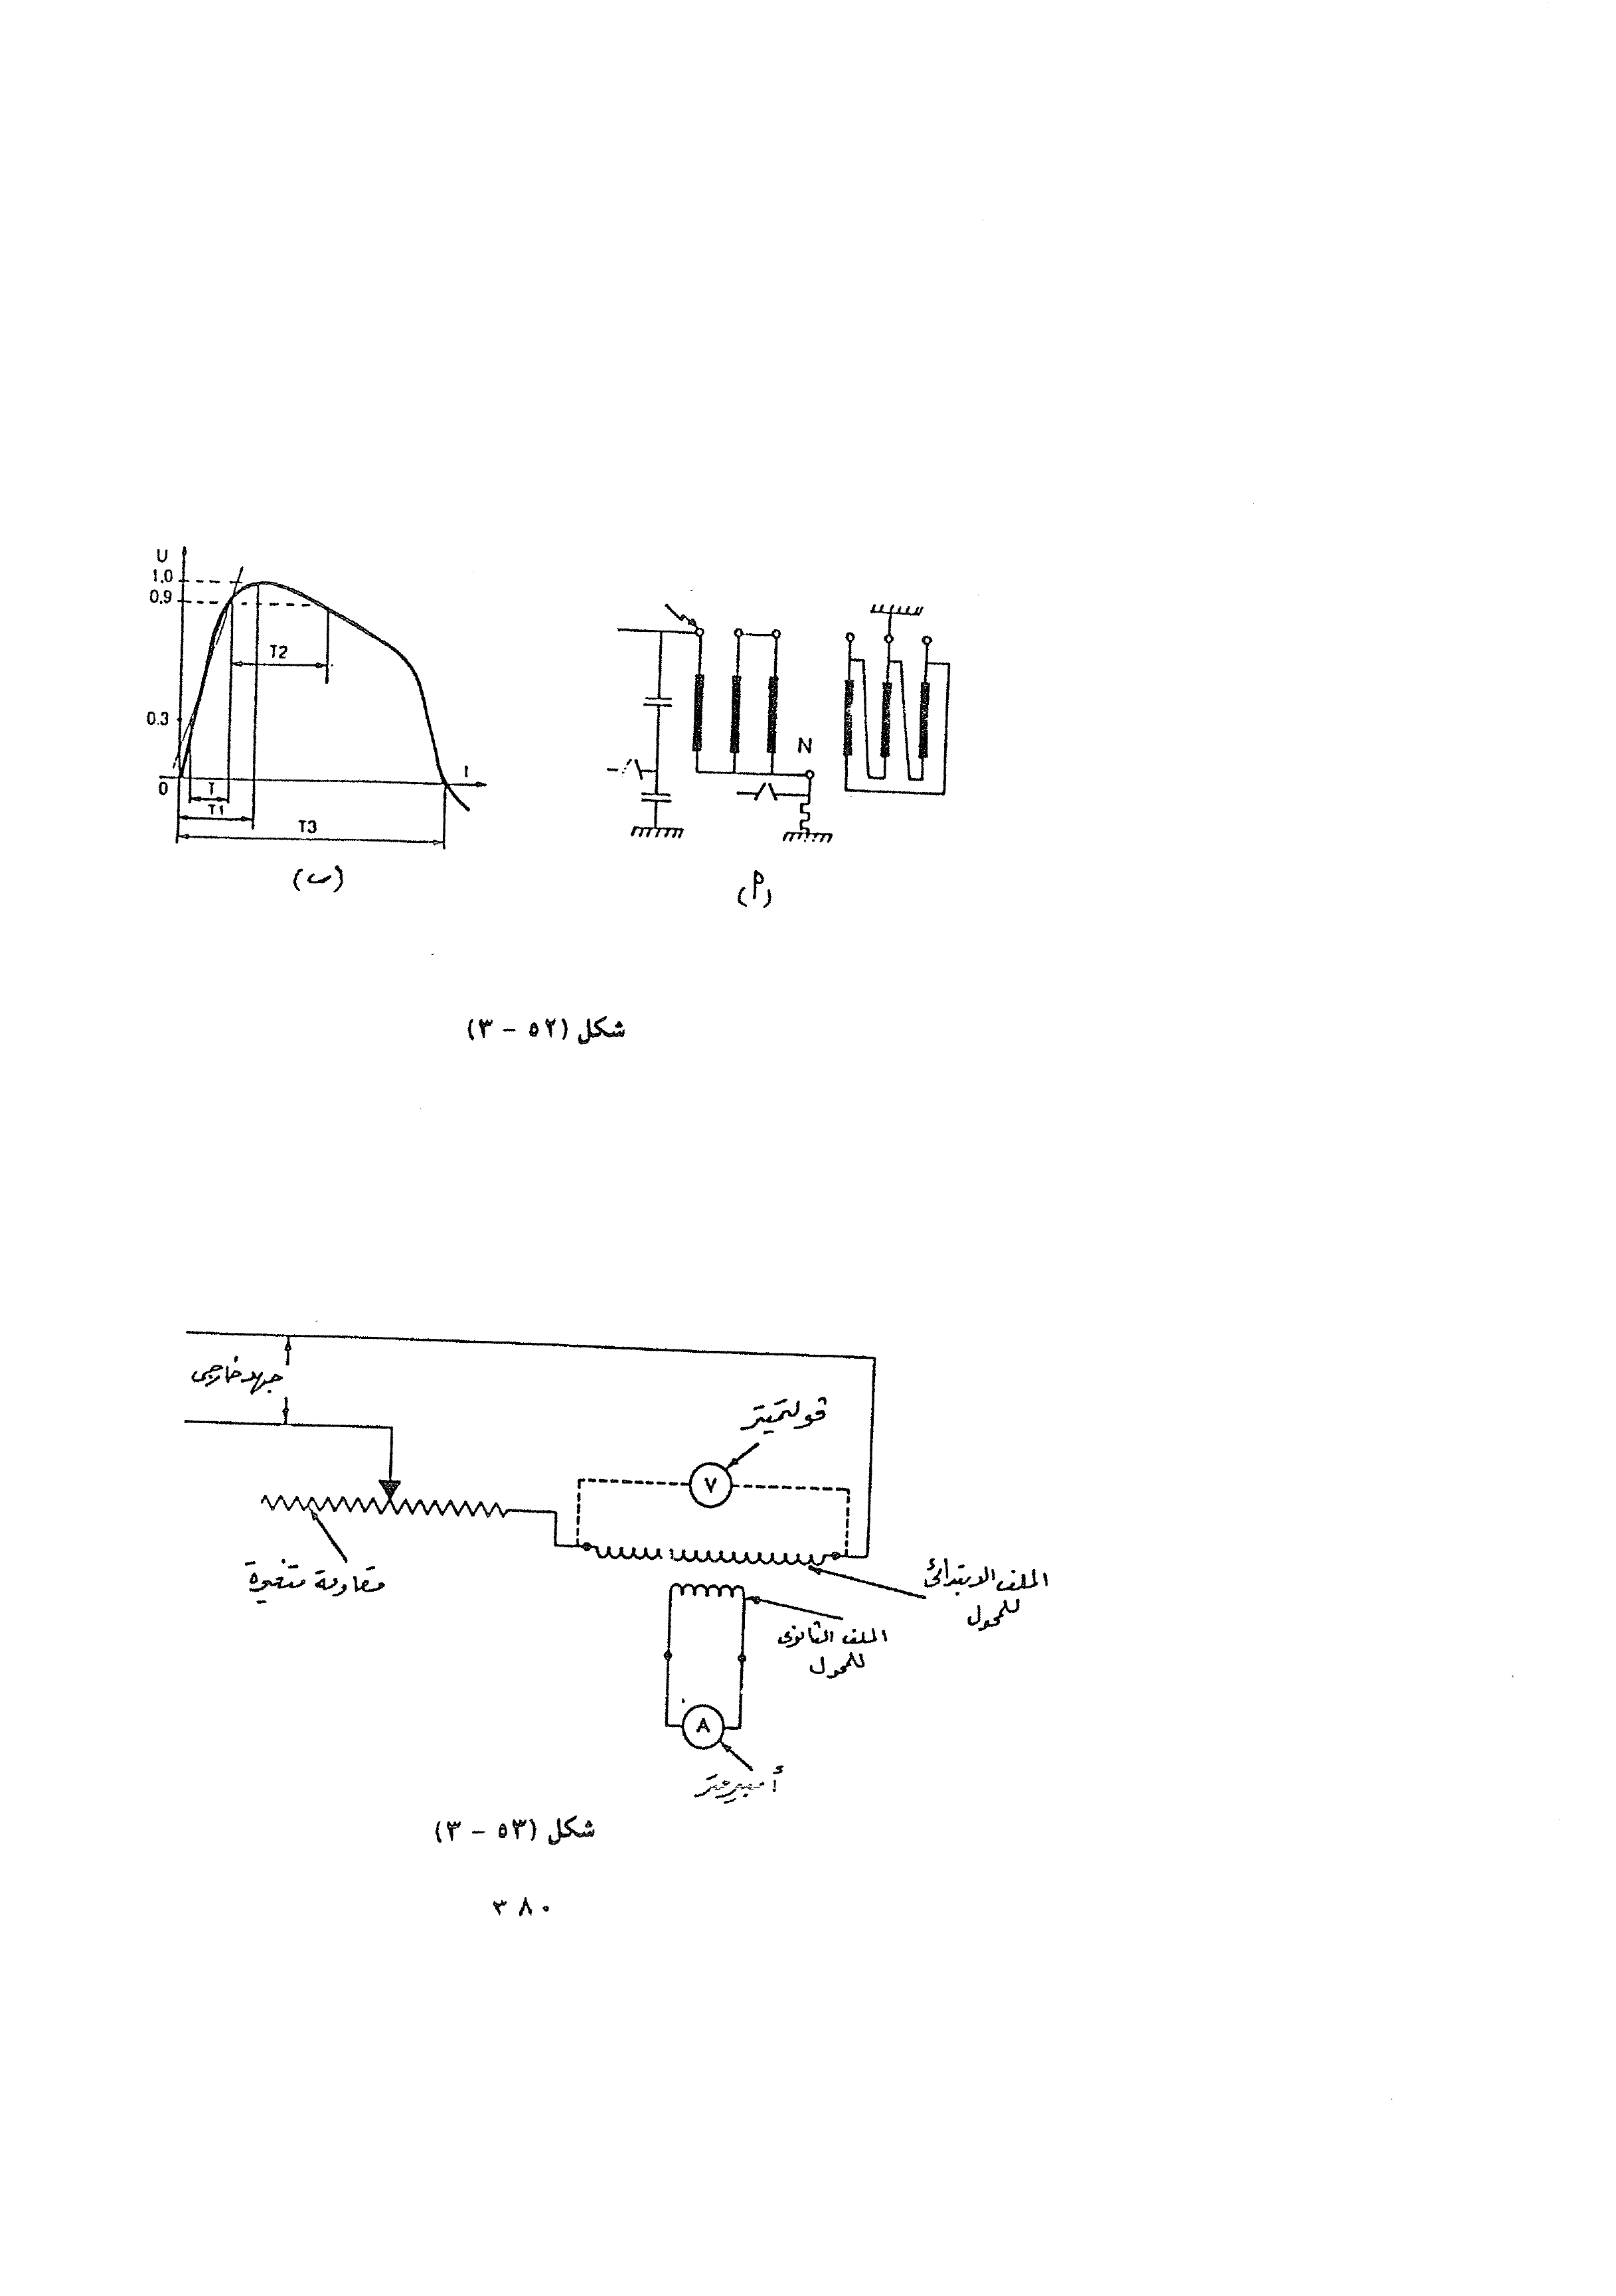 U
1.0
0.9
T2
0.3
0
t
T
T1
T3
N
(ب)
(أ)
شكل (٥٢ - ٣)
جهد خارجى
ڤولتميتر
V
مقاومة متغيرة
الملف الابتدائى
للمحول
الملف الثانوى
للمحول
A
أمبيرميتر
شكل (٥٣ - ٣)
٣٨٠